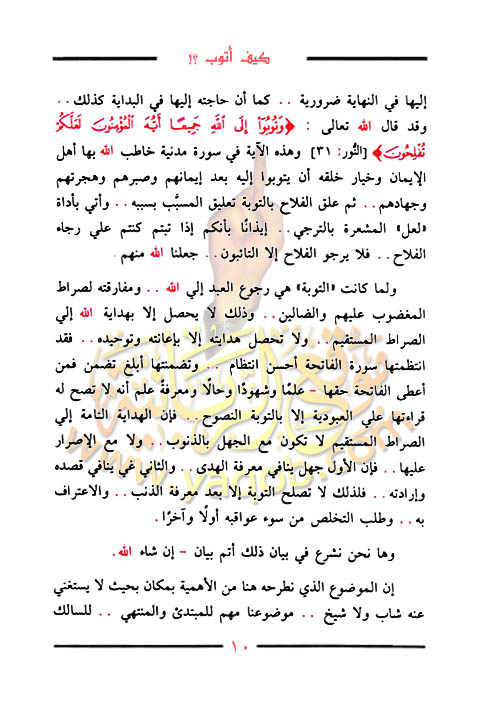 كيف أتوب ؟!
إليها في النهاية ضرورية .. كما أن حاجته إليها في البداية كذلك ..
وقد قال الله تعالى : ﴿وَتُوبُوٓا۟ إِلَى ٱللَّهِ جَمِيعًا أَيُّهَ ٱلْمُؤْمِنُونَ لَعَلَّكُمْ
تُفْلِحُونَ﴾ [النُّور: ٣١] وهذه الآية في سورة مدنية خاطب الله بها أهل
الإيمان وخيار خلقه أن يتوبوا إليه بعد إيمانهم وصبرهم وهجرتهم
وجهادهم .. ثم علق الفلاح بالتوبة تعليق المسبَّب بسببه .. وأتي بأداة
«لعل» المشعرة بالترجي .. إيذانًا بأنكم إذا تبتم كنتم علي رجاء
الفلاح .. فلا يرجو الفلاح إلا التائبون .. جعلنا الله منهم .
ولما كانت «التوبة» هي رجوع العبد إلي الله .. ومفارقته لصراط
المغضوب عليهم والضالين .. وذلك لا يحصل إلا بهداية الله إلي
الصراط المستقيم .. ولا تحصل هدايته إلا بإعانته وتوحيده .. فقد
انتظمتها سورة الفاتحة أحسن انتظام .. وتضمنتها أبلغ تضمن فمن
أعطى الفاتحة حقها – علمًا وشهودًا وحالًا ومعرفةً علم أنه لا تصح له
قراءتها علي العبودية إلا بالتوبة النصوح .. فإن الهداية التامة إلي
الصراط المستقيم لا تكون مع الجهل بالذنوب .. ولا مع الإصرار
عليها .. فإن الأول جهل ينافي معرفة الهدى .. والثاني غي ينافي قصده
وإرادته .. فلذلك لا تصلح التوبة إلا بعد معرفة الذنب .. والاعتراف
به .. وطلب التخلص من سوء عواقبه أولًا وآخرًا.
وها نحن نشرع في بيان ذلك أتم بيان – إن شاء الله.
إن الموضوع الذي نطرحه هنا من الأهمية بمكان بحيث لا يستغني
عنه شاب ولا شيخ .. موضوعنا مهم للمبتدئ والمنتهي .. للسالك
١٠